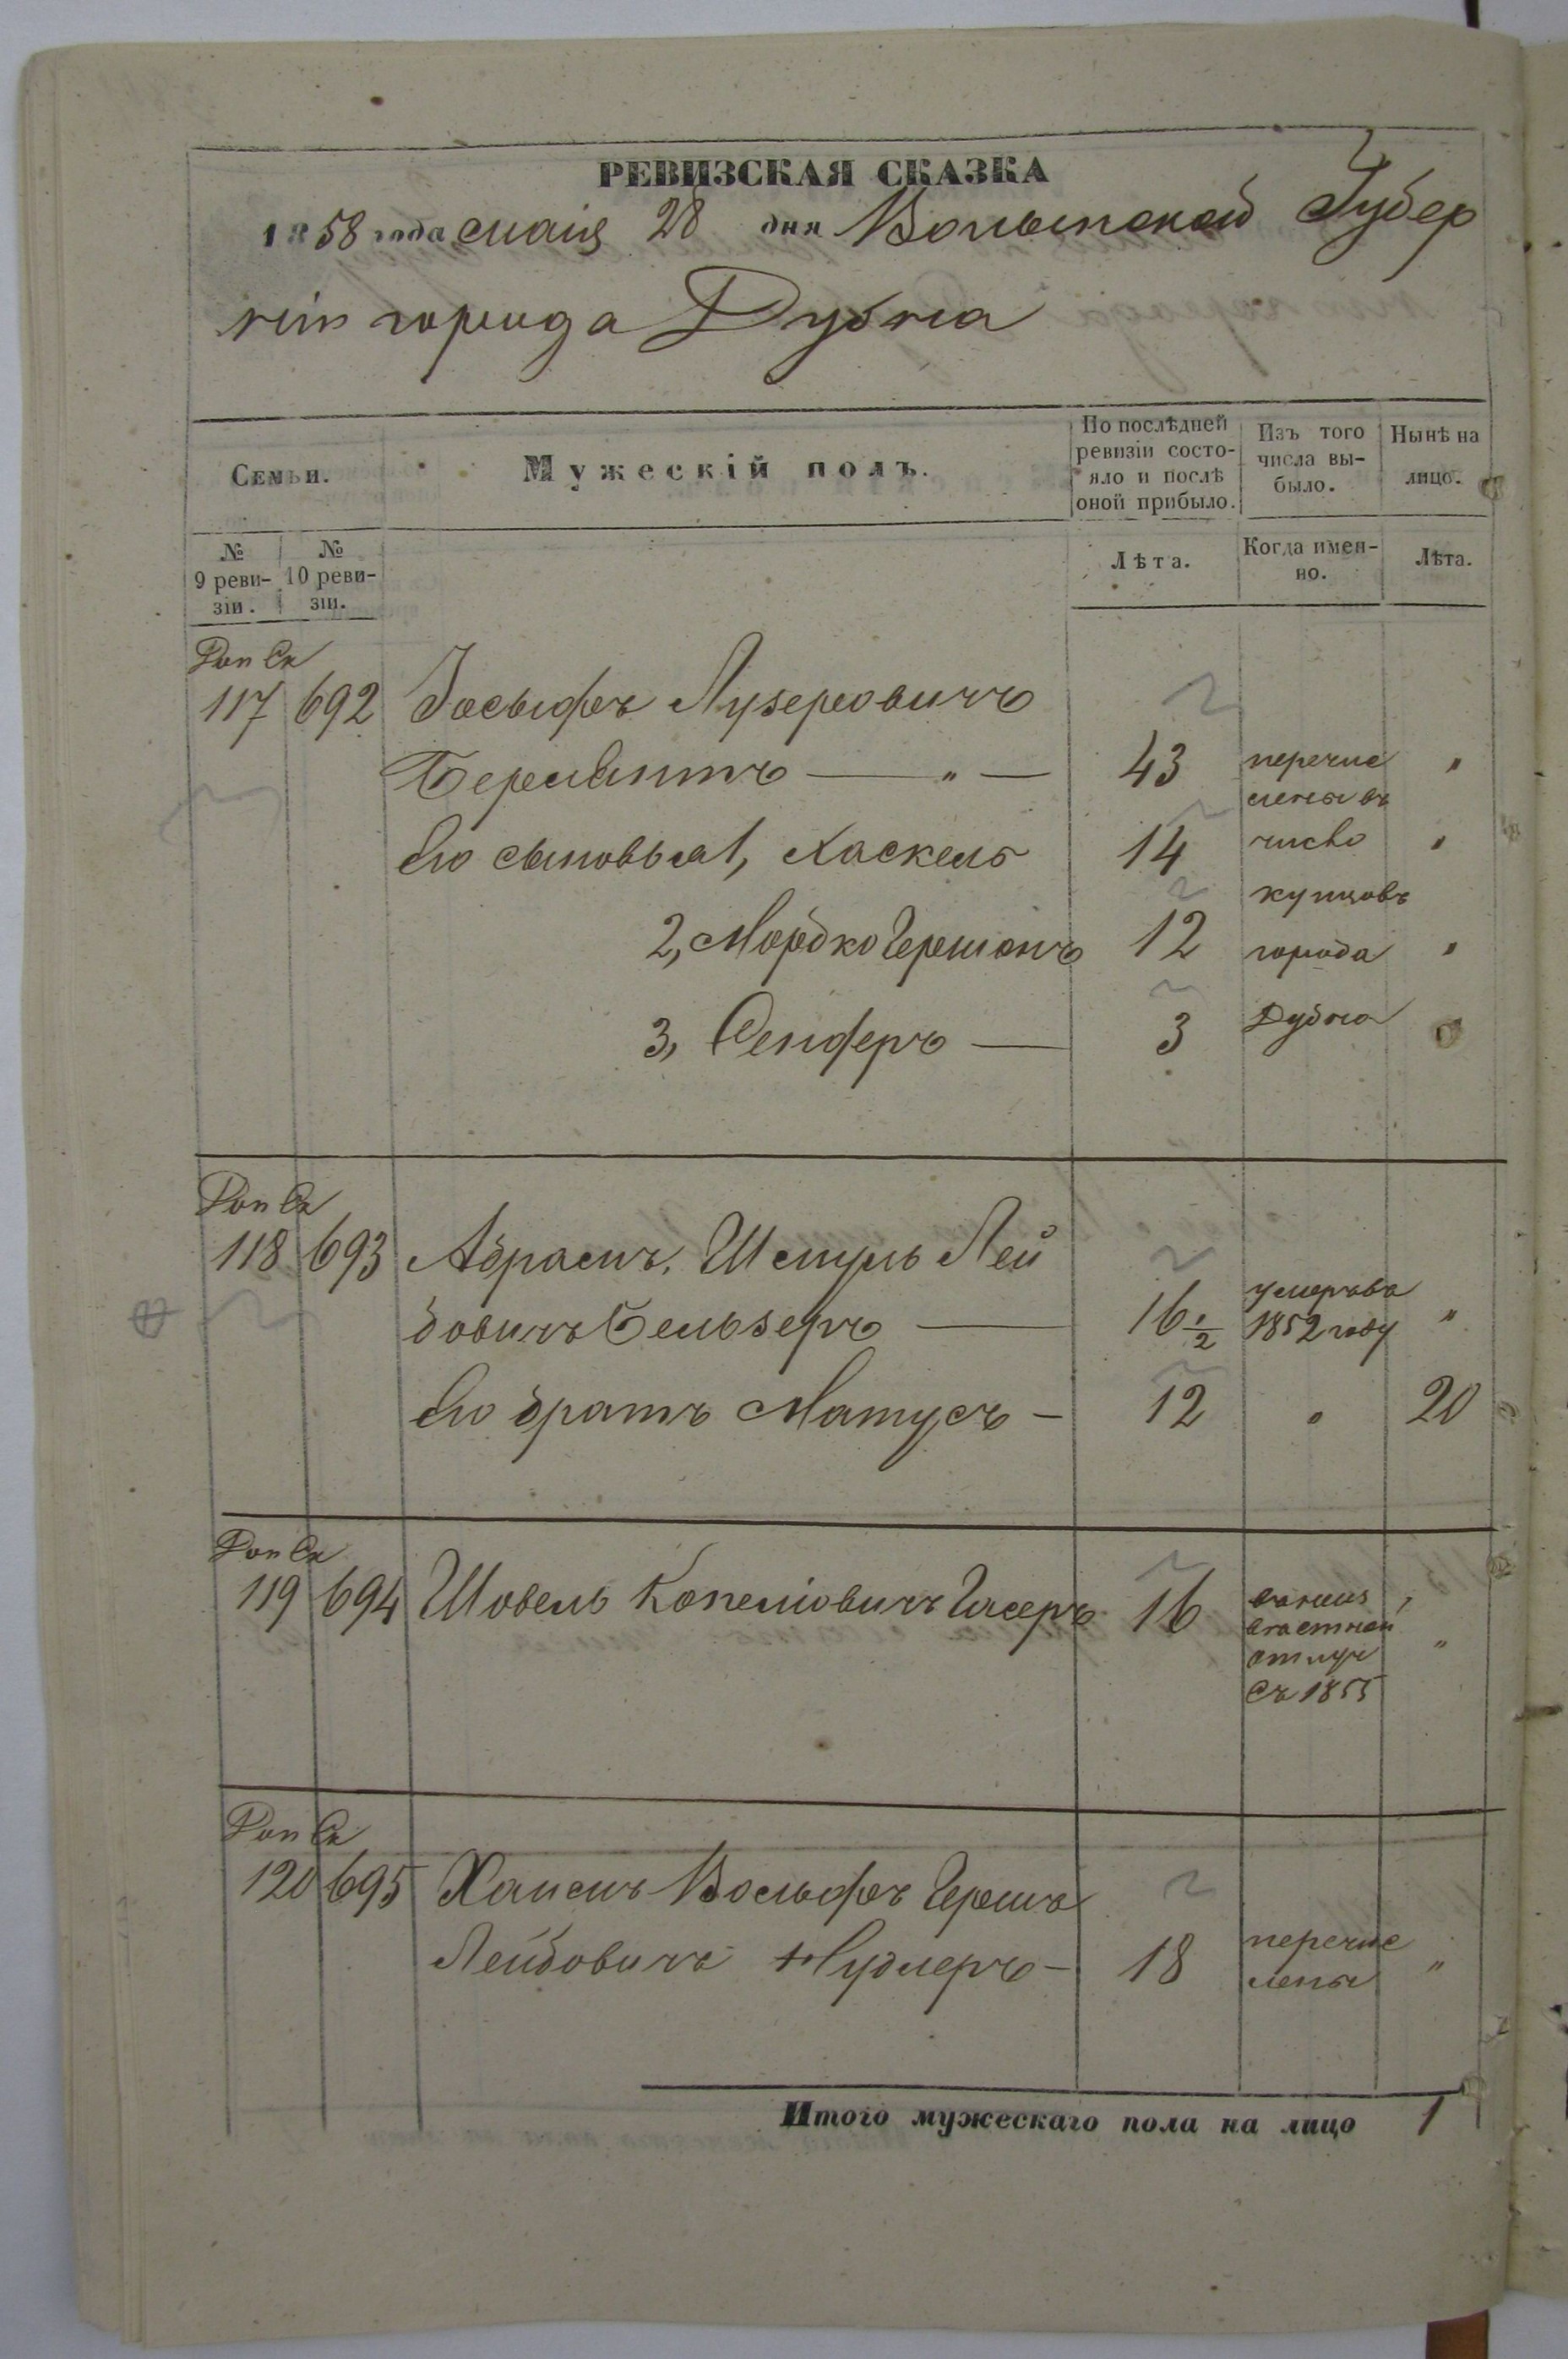 РЕВИЗСКАЯ СКАЗКА
1858 года маія 28 дня Волынской Губер
ніи города Дубна
Семьи.
Мужескій полъ.
По послѣдней ревизіи состо-
яло и послѣ оной прибыло.
Изъ того числа вы-
было.
Нынѣ на лицо.
№ 9 реви-
зіи.
№ 10 реви-
зіи.
Лѣта.
Когда имен-
но.
Лѣта.
Доп Ск
117 692 Іосьифъ Лузеровичъ
43 перечис "
лены въ
Его сыновья 1, Хаскель 14 число "
купцовъ
2, Мордко Гершонъ 12 города "
3, Сендеръ — 3 Дубна
Доп Ск
118 693 Абрамъ Шмуль Лей
бовичъ Бельзеръ — 16 1/2 умеръ въ 1852 году "
Его братъ Матусъ — 12 " 20
Доп Ск
119 694 Шовель Копелiовичъ 16
отлуч "
съ 1855
Доп Ск
120 695 Хаимъ Вольфъ Гершъ
Лейбовичъ Нудлеръ — 18 перечис
лены "
Итого мужескаго пола на лицо 1